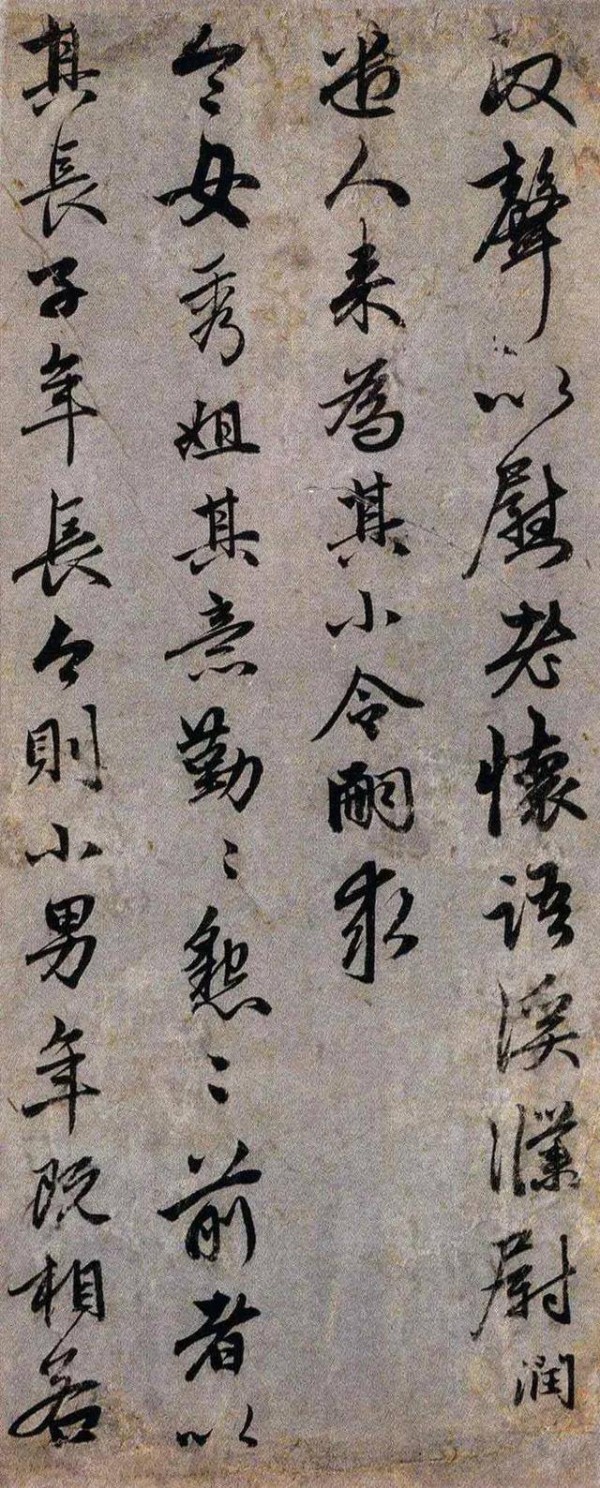 政聲以慰老懷語溪濮尉潤
遣人来為其小令嗣求
令女秀姐其意勤〻懇〻前者以
其長子年長今則小男年既相若